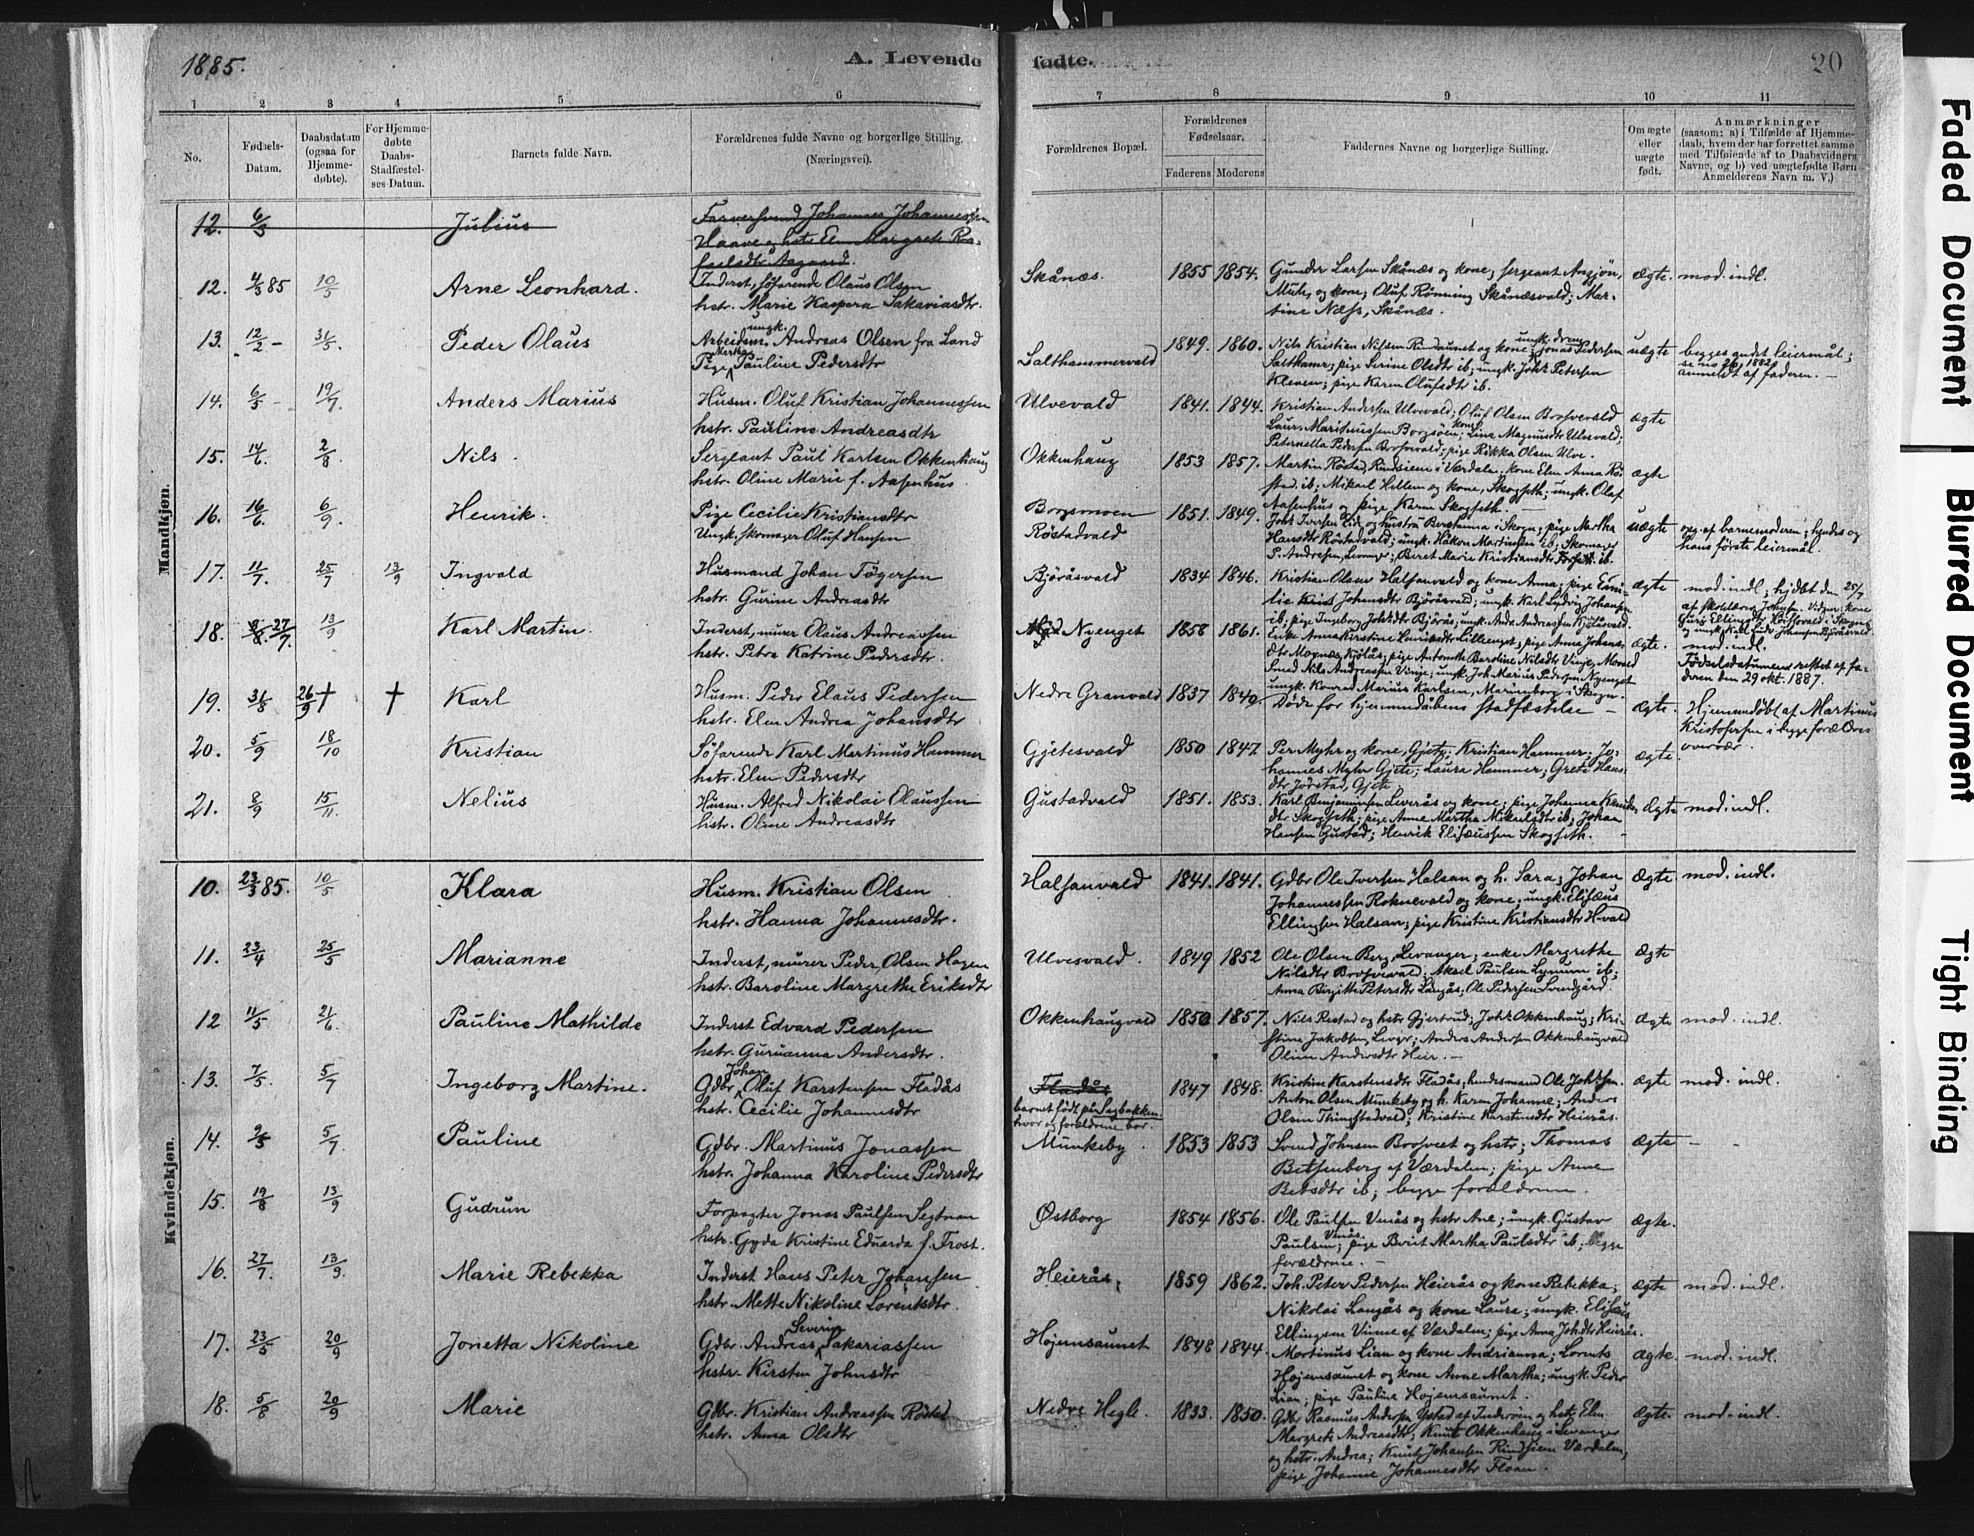 1885.
A. Levende
fødte.
20
1 2 3 4 5 6 7 8 9 10 11
No.
Fødsels-
Datum.
Daabsdatum
(ogsaa for
Hjemme-
døbte).
For Hjemme-
døbte
Daabs-
Stadfæstel-
ses-Datum.
Barnets fulde Navn.
Forældrenes fulde Navne og borgerlige Stilling.
(Næringsvei).
Forældrenes Bopæl.
Forældrenes
Fødselsaar.
Faderens Moderens
Faddernes Navne og borgerlige Stilling.
Om ægte
eller
uægte
født.
Anmærkninger
(saasom: a) i Tilfælde af Hjemme-
daab, hvem der har forrettet samme
med Tilføiende af to Daabsvidners
Navne, og b) ved uægtefødte Børn
Anmelderens Navn m. V.)
Mandkjøn.
12. 6/3 Julius Farversvend Johannes Johannessen
Haave og hstr. Elen Margrete
Aagaard.
12. 4/3 85 10/5 Arne Leonhard. Inderst, söfarende Olaus Olsen
hstr. Marie Kaspera Sakariasdtr.
Skånæs. 1855 1854. Gunder Larsen Skånæs og kone; sergeant
og kone; Oluf Rönning Skånæsvald; Mar-
tine Næss, Skånæs.
ægte. mod. indl.
13. 12/2 - 31/5. Peder Olaus ungk.
Arbeidsm. Andreas Olsen fra Land
Pige Marthe Pauline Pedersdtr
Salthammervald 1849. 1860. Nils Kristian Nilsen Rindaunet og kone; ungk. dreng Jonas Pedersen
Salthamr; pige Serine Olsdtr ib; ungk. Johs Petersen
Kleven; pige Karen Olufsdtr ib.
uægte begges andet leiermål;
se no 26, 1882
anmeldt af faderen. -
14. 6/5 - 19/7. Anders Marius Husm. Oluf Kristian Johannessen
hstr. Pauline Andreasdtr
Ulvevald 1841. 1844. Kristian Andersen Ulvevald; Oluf Olsen Brosvevald
Laur. Marinussen Borgsöen; kone Line Magnusdtr Ulvevald;
Peternella Pedersen Brosvevald; pige Rikka Olsen Ulve.
ægte
15. 14/6. 2/8. Nils. Sergeant Paul Karlsen Okkenhaug
hstr. Oline Marie f. Aasenhus
Okkenhaug 1853 1857. Martin Röstad, Rindsiem i Værdalen; kone Elen Anna Rö-
stad ib; Mikael Hellem og kone, Skogseth; ungk. Olaf
Aasenhus og pige Karen Skogseth.
ægte
16. 16/6. 6/9. Henrik. Pige Cecilie Kristiansdtr
Ungk. skomager Oluf Hansen
Borgsmoen
Röstadvald 1851. 1849. Johs Iversen Eid og hustru Beretanna i Skogn; pige Martha
Hansdtr Röstadvald; ungk. Håkon Martinsen ib; Skomager
P. Andresen, Levanger; Beret Marie Kristiansdtr ib.
uægte opg. af barnemoderen; hendes og
hans förste leiermål.
17. 11/7. 25/7 13/9 Ingvald Husmand Johan Tögersen
hstr. Gurine Andreasdtr
Björåsvald 1834 1846. Kristian Olsen Halsanvald og kone Anna; pige Emi-
lie Johansdtr Björåsvald; ungk. Karl Ludvig Johansen
ib; pige Ingeborg Johsdtr Björås; ungk. Andr. Andreassen Kjölåsvald.
ægte mod. indl; hjdøbt den 25/7
af skolelærer Johnsen. Vidner: kone
Guri Ellingsdtr i Skogn
og ungk. Karl Ludv. Johansen Björåsvald
18. 27/7. 13/9 Karl Martin. Inderst, murer Olaus Andreassen
hstr. Petra Katrine Pedersdtr.
Nyenget 1858 1861. Enke Anna Kirstine Henriksdtr Lillenget; pige Anna Johans-
dtr Mognæs, Kjölås; pige Antonette Baroline Nilsdtr Vinje,
Smed Nils Andreassen Vinje; ungk. Joh. Marius Pedersen Nyenget
ungk. Konrad Marius Karlsen, Marienborg i Skogn.
ægte. mod. indl.
Fødselsdatumet rettet af fa-
deren den 29 okt. 1887.
19. 31/8 26/9 † † Karl Husm. Peder Elaus Pedersen
hstr. Elen Andrea Johansdtr
Nedre Granvald 1837 1849. Døde før hjemmedåbens stadfæstelse - ægte. Hjemmedöbt af Martinus
Kristofersen i begge forældres
overvær.
20. 5/9 18/10 Kristian Söfarende Karl Martinus Hammer
hstr. Elen Pedersdtr
Gjetesvald 1850 1847. Per Myhr og kone, Gjete; Kristian Hammer; Jo-
hannes Myhr Gjete; Laura Hammer; Grete Hans-
dtr Jörstad, Gjete.
ægte.
21. 8/9 15/11. Nelius Husm. Alfred Nikolai Olaussen
hstr. Oline Andreasdtr
Gustadvald 1851. 1853. Karl Benjaminsen Leverås og kone; pige Johanna Knuds-
dtr Skogseth; pige Anne Martha Mikaelsdtr ib; Johan
Hansen Gustad; Henrik Elisæussen Skogseth. -
ægte mod. indl.
Kvindekjøn.
10. 23/3 85. 10/5 Klara Husm. Kristian Olsen
hstr. Hanna Johannesdtr.
Halsanvald 1841. 1841. Gdbr Ole Iversen Halsan og h. Sara; Johan
Johannessen Roknevald og kone; ungk. Elisæus
Ellingsen Halsan; pige Kristine Kristiansdtr H-vald
ægte mod. indl.
11. 23/4 25/5 Marianne Inderst, murer Peder Olsen Hagen
hstr. Baroline Margrethe Eriksdtr
Ulvesvald. 1849 1852 Ole Olsen Berg, Levanger; enke Margrethe
Nilsdtr Brosvevald; Aksel Paulsen Lynum ib;
Anna Birgitte Petersdtr Langås; Ole Pedersen Svendgård.
ægte
12 11/5 21/6. Pauline Mathilde Inderst Edvard Pedersen
hstr. Gurianna Andersdtr.
Okkenhaugvald 1850 1857. Nils Restad og hstr Gjertrud; Johs Okkenhaug; Kri-
stine Jakobsen, Levgr; Anders Andersen Okkenhaugvald
Oline Andersdtr Heir. -
ægte mod. indl.
13. 7/5. 5/7 Ingeborg Martine. Gdbr Johan Oluf Karstensen Fladås
hstr. Cecilie Johannesdtr
Fladås
barnet födt på Sagbakken
hvor og forældrene bor.
1847 1848. Kristine Karstensdtr Fladås; lensmand Ole Johsen.
Anton Olsen Munkeby og h. Karen Johanne; Anders
Olsen Thingstadvald; Kristine Karstensdtr Heierås.
ægte mod. indl.
14. 9/5 5/7. Pauline Gdbr. Martinus Jonassen
hstr. Johanna Karoline Pedersdtr
Munkeby. 1853 1853 Svend Johnsen Brosveet og hstr; Thomas
Betsenberg af Værdalen; pige Anne
Betsdtr ib; begge forældrene.
ægte - -
15. 19/8 13/9 Gudrun Forpagter Jonas Paulsen Segtnan
hstr. Gyda Kristine Eduarda f. Frost.
Østborg 1854 1856. Ole Paulsen Vinås og hstr Ane; ungk. Gustav
Paulsen; Vinås pige Berit Martha Paulsdtr ib; begge
forældrene. -
ægte.
16. 27/7. 13/9. Marie Rebekka Inderst Hans Peter Johansen
hstr. Mette Nikoline Lorentsdtr.
Heierås, 1859 1862. Joh. Peter Pedersen Heierås og kone Rebekka;
Nikolai Langås og kone Laura; ungk. Elisæus
Ellingsen Vinne af Værdalen; pige Anna Johsdtr Heierås.
ægte mod. indl.
17. 23/5 20/9 Jonetta Nikoline Gdbr. Andreas Severin Sakariassen
hstr. Kirsten Johnsdtr
Hojemsaunet 1848 1844. Martinus Lian og kone Andrianna; Lorents
Hojemsaunet og kone Anne Martha; ungk. Peder
Lian; pige Pauline Hojemsaunet.
ægte. mod. indl.
18. 5/8 20/9 Marie Gdbr. Kristian Andreassen Röstad
hstr. Anna Olsdtr
Nedre Hegle. 1833. 1850. Gdbr Rasmus Andersen Ystad af Inderöen og hstr Elen
Margrete Andreasdtr; Knut Okkenhaug i Levanger
og hstr. Andrea; Knut Johansen Rindsiem Værdalen,
pige Johanne Johannesdtr Floan.
ægte. mod. indl.
Faded Document
Blurred Document
Tight Binding